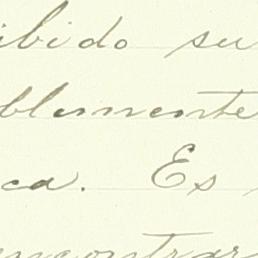 ibido su
blemente
ca. Es
encontrar